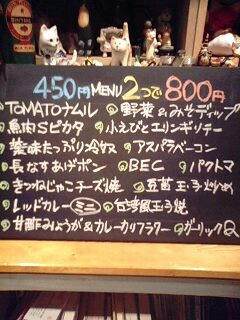 450円 MENU 2つで 800円
TOMATOナムル 野菜&みそディップ
魚肉ピカタ 小えびとエリンギソテー
薬味たっぷり冷ヤス アスパラベーコン
長なすあげポン BEC パクトマ
きつねじゃこチーズ焼 五苗玉子炒め
レッドカレーミニ 台湾風玉子焼
甘酢みょうが&カレーカリフラワー ガーリックQ